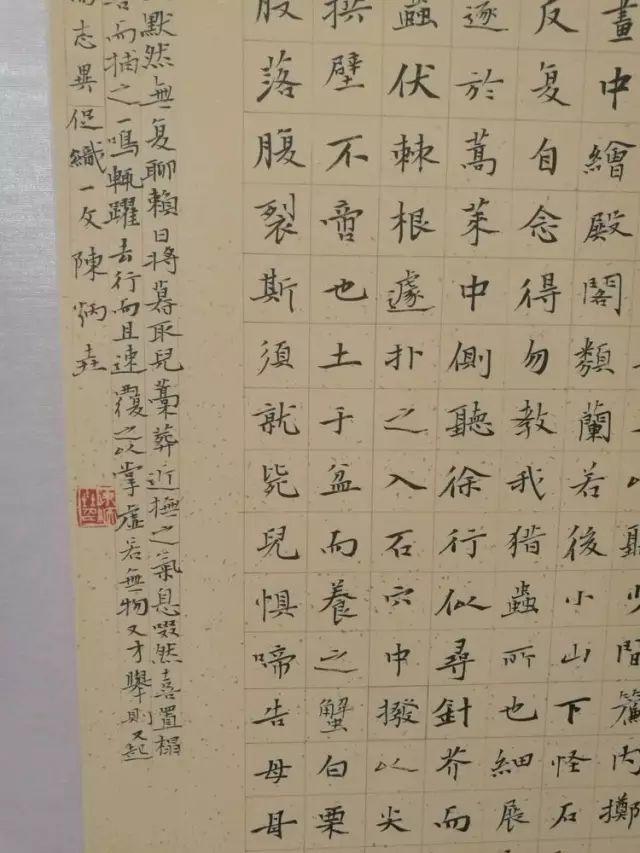 聽少間簾內擲
畫中繪殿閣類蘭若後小山下怪石
反复自念得勿教我猎蟲所也細展
逐於蒿萊中側聽徐行似尋針芥而
蟲伏棘根遽扑之入石穴中撥以尖
拱璧不啻也土于盆而養之蟹白栗
股落腹裂斯須就斃兒懼啼告母母
默然無复聊賴日將暮取兒藁葬近撫之氣息惙然喜置榻
喜而捕之一鳴輒躍去行而且速覆之以掌虛若無物又才舉則又起
志異促織一文陳炳垚